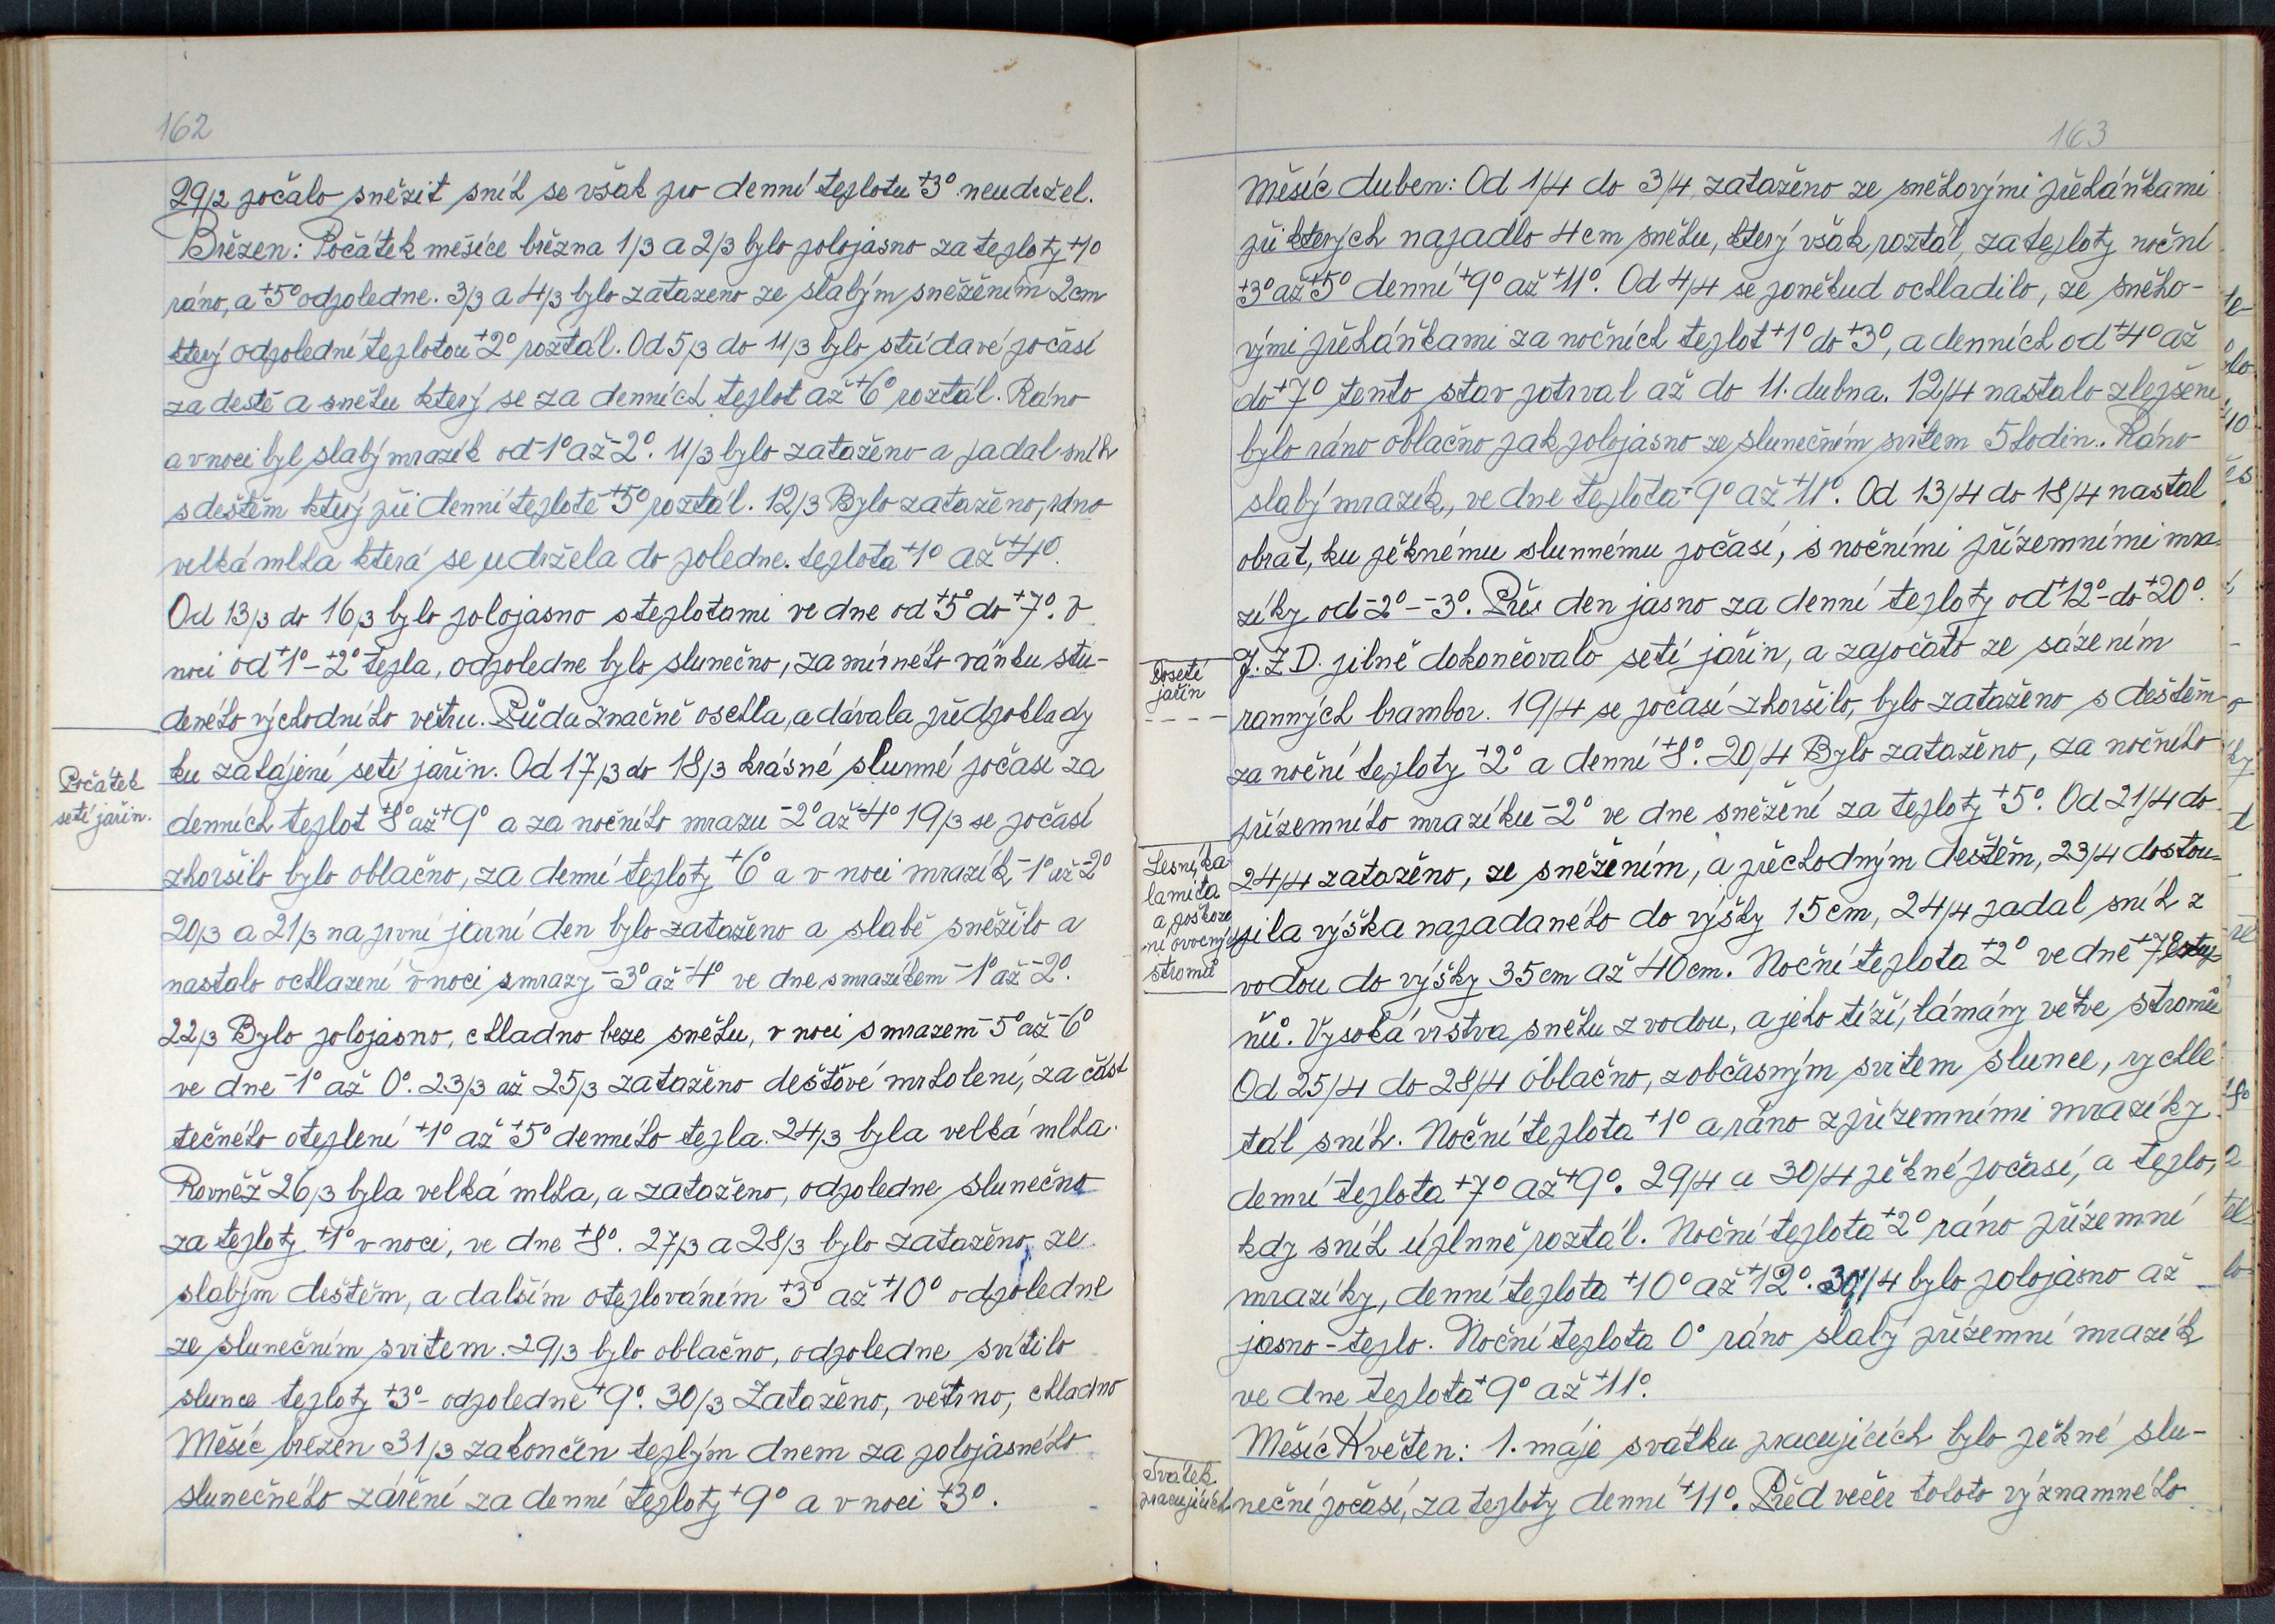 162
29/2 počalo sněžit sníh se však pro denní teplotu +3° neudržel.
Březen: Počátek měsíce března 1/3 a 2/3 bylo polojasno za teploty +1°
ráno, a +5° odpoledne. 3/3 a 4/3 bylo zatazeno ze slabým sněžením 2cm
který odpolední teplotou +2° roztál. Od 5/3 do 11/3 bylo střídavé počasí
za deště a sněhu který se za denních teplot až +6° roztál. Ráno
a v noci byl slabý mrazík od -1° až -2°. 11/3 bylo zataženo a padal sníh
s deštěm který při denní teplotě +5° roztál. 12/3 Bylo zataženo, ráno
velká mlha která se udržela do poledne. teplota +1° až +4°.
Od 13/3 do 16/3 bylo polojasno s teplotami ve dne od +5° do +7°. v
noci od +1° - +2° tepla, odpoledne bylo slunečno, za mírného vánku stu-
deného východního větru. Půda značně oschla, a dávala předpoklady
Počátek
setí jařin.
ku zahájení setí jařin. Od 17/3 do 18/3 krásné slunné počasí za
denních teplot +8° až +9° a za nočního mrazu -2° až -4° 19/3 se počasí
zhoršilo bylo oblačno, za denní teploty +6° a v noci mrazík -1° až -2°
20/3 a 21/3 na první jarní den bylo zataženo a slabě sněžilo a
nastalo ochlazení v noci s mrazy -3° až -4° ve dne s mrazíkem -1° až -2°.
22/3 Bylo polojasno, chladno beze sněhu, v noci s mrazem -5° až -6°
ve dne -1° až 0°. 23/3 až 25/3 zataženo dešťové mrholení, za část
tečného oteplení +1° až +5° denního tepla. 24/3 byla velká mlha.
Rovněž 26/3 byla velká mlha, a zataženo, odpoledne slunečno
za teploty +1° v noci, ve dne +8°. 27/3 a 28/3 bylo zataženo, ze
slabým deštěm, a dalším oteplováním +3° až +10° odpoledne
ze slunečním svitem. 29/3 bylo oblačno, odpoledne svítilo
slunce teploty +3° - odpoledne +9°. 30/3 Zataženo, větrno, chladno
Měsíc březen 31/3 zakončen teplým dnem za polojasného
slunečného záření za denní teploty +9° a v noci +3°.
163
Měsíc duben: Od 1/4 do 3/4 zataženo ze sněhovými přeháňkami
při kterých napadlo 4cm sněhu, který však roztál, za teploty noční
+3° až +5° denní +9° až +11°. Od 4/4 se poněkud ochladilo, ze sněho-
vými přeháňkami za nočních teplot +1° do +3°, a denních od +4° až
do +7° tento stav potrval až do 11. dubna. 12/4 nastalo zlepšení
bylo ráno oblačno pak polojasno ze slunečním svitem 5 hodin. Ráno
slabý mrazík, ve dne teplota +9° až +11°. Od 13/4 do 18/4 nastal
obrat, ku pěknému slunnému počasí, s nočními přízemními mra-
zíky od -2° - -3°. Přes den jasno za denní teploty od +12° - do +20°.
Dosetí
jařin
J.Z.D. pilně dokončovalo setí jařin, a započato ze sázením
ranných brambor. 19/4 se počasí zhoršilo, bylo zataženo s deštěm
za noční teploty +2° a denní +8°. 20/4 Bylo zataženo, za nočního
přízemního mrazíku -2° ve dne sněžení za teploty +5°. Od 21/4 do
Lesní ka-
lamita
a poškoze
ní ovocných
stromů
24/4 zataženo, ze sněžením, a přechodným deštěm, 23/4 dostou-
pila výška napadaného do výšky 15cm, 24/4 padal sníh z
vodou do výšky 35cm až 40cm. Noční teplota +2° ve dne +7° stup-
ňů. Vysoká vrstva sněhu z vodou, a jeho tíží, lámány větve stromů
Od 25/4 do 28/4 oblačno, z občasným svitem slunce, rychle
tál sníh. Noční teplota +1° a ráno z přízemními mrazíky
denní teplota +7° až +9°. 29/4 a 30/4 pěkné počasí, a teplo,
kdy sníh úplnně roztál. Noční teplota +2° ráno přízemní
mrazíky, denní teplota +10° až +12°. 30/4 bylo polojasno až
jasno - teplo. Noční teplota 0° ráno slabý přízemní mrazík
ve dne teplota +9° až +11°.
Měsíc Květen: 1. máje svátku pracujících bylo pěkné slu-
Svátek
pracujících
neční počasí, za teploty denní +11°. Před večer tohoto významného